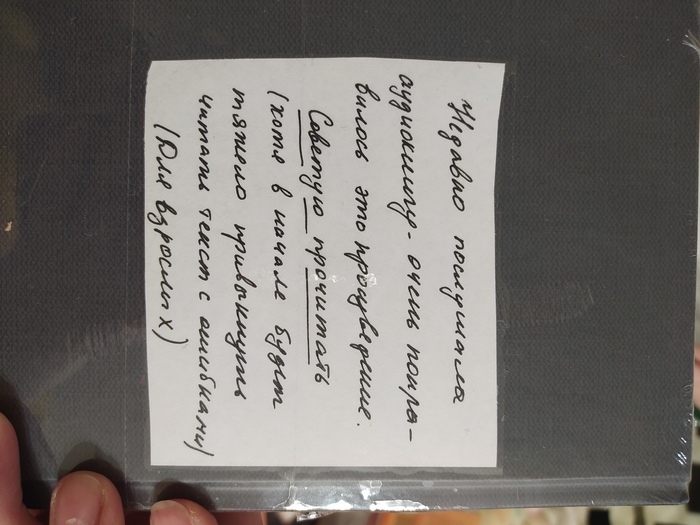 Недавно послушала
аудиокнигу - очень понра-
вилось это произведение.
Советую прочитать
(хотя в начале будет
тяжело привыкнуть
читать текст с ошибками)
(Для взрослых)